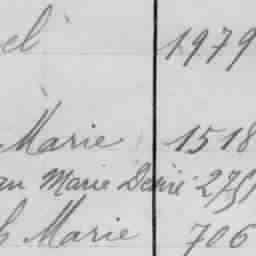 el 1979
Marie 1518
an Marie Désiré 275
h Marie 706